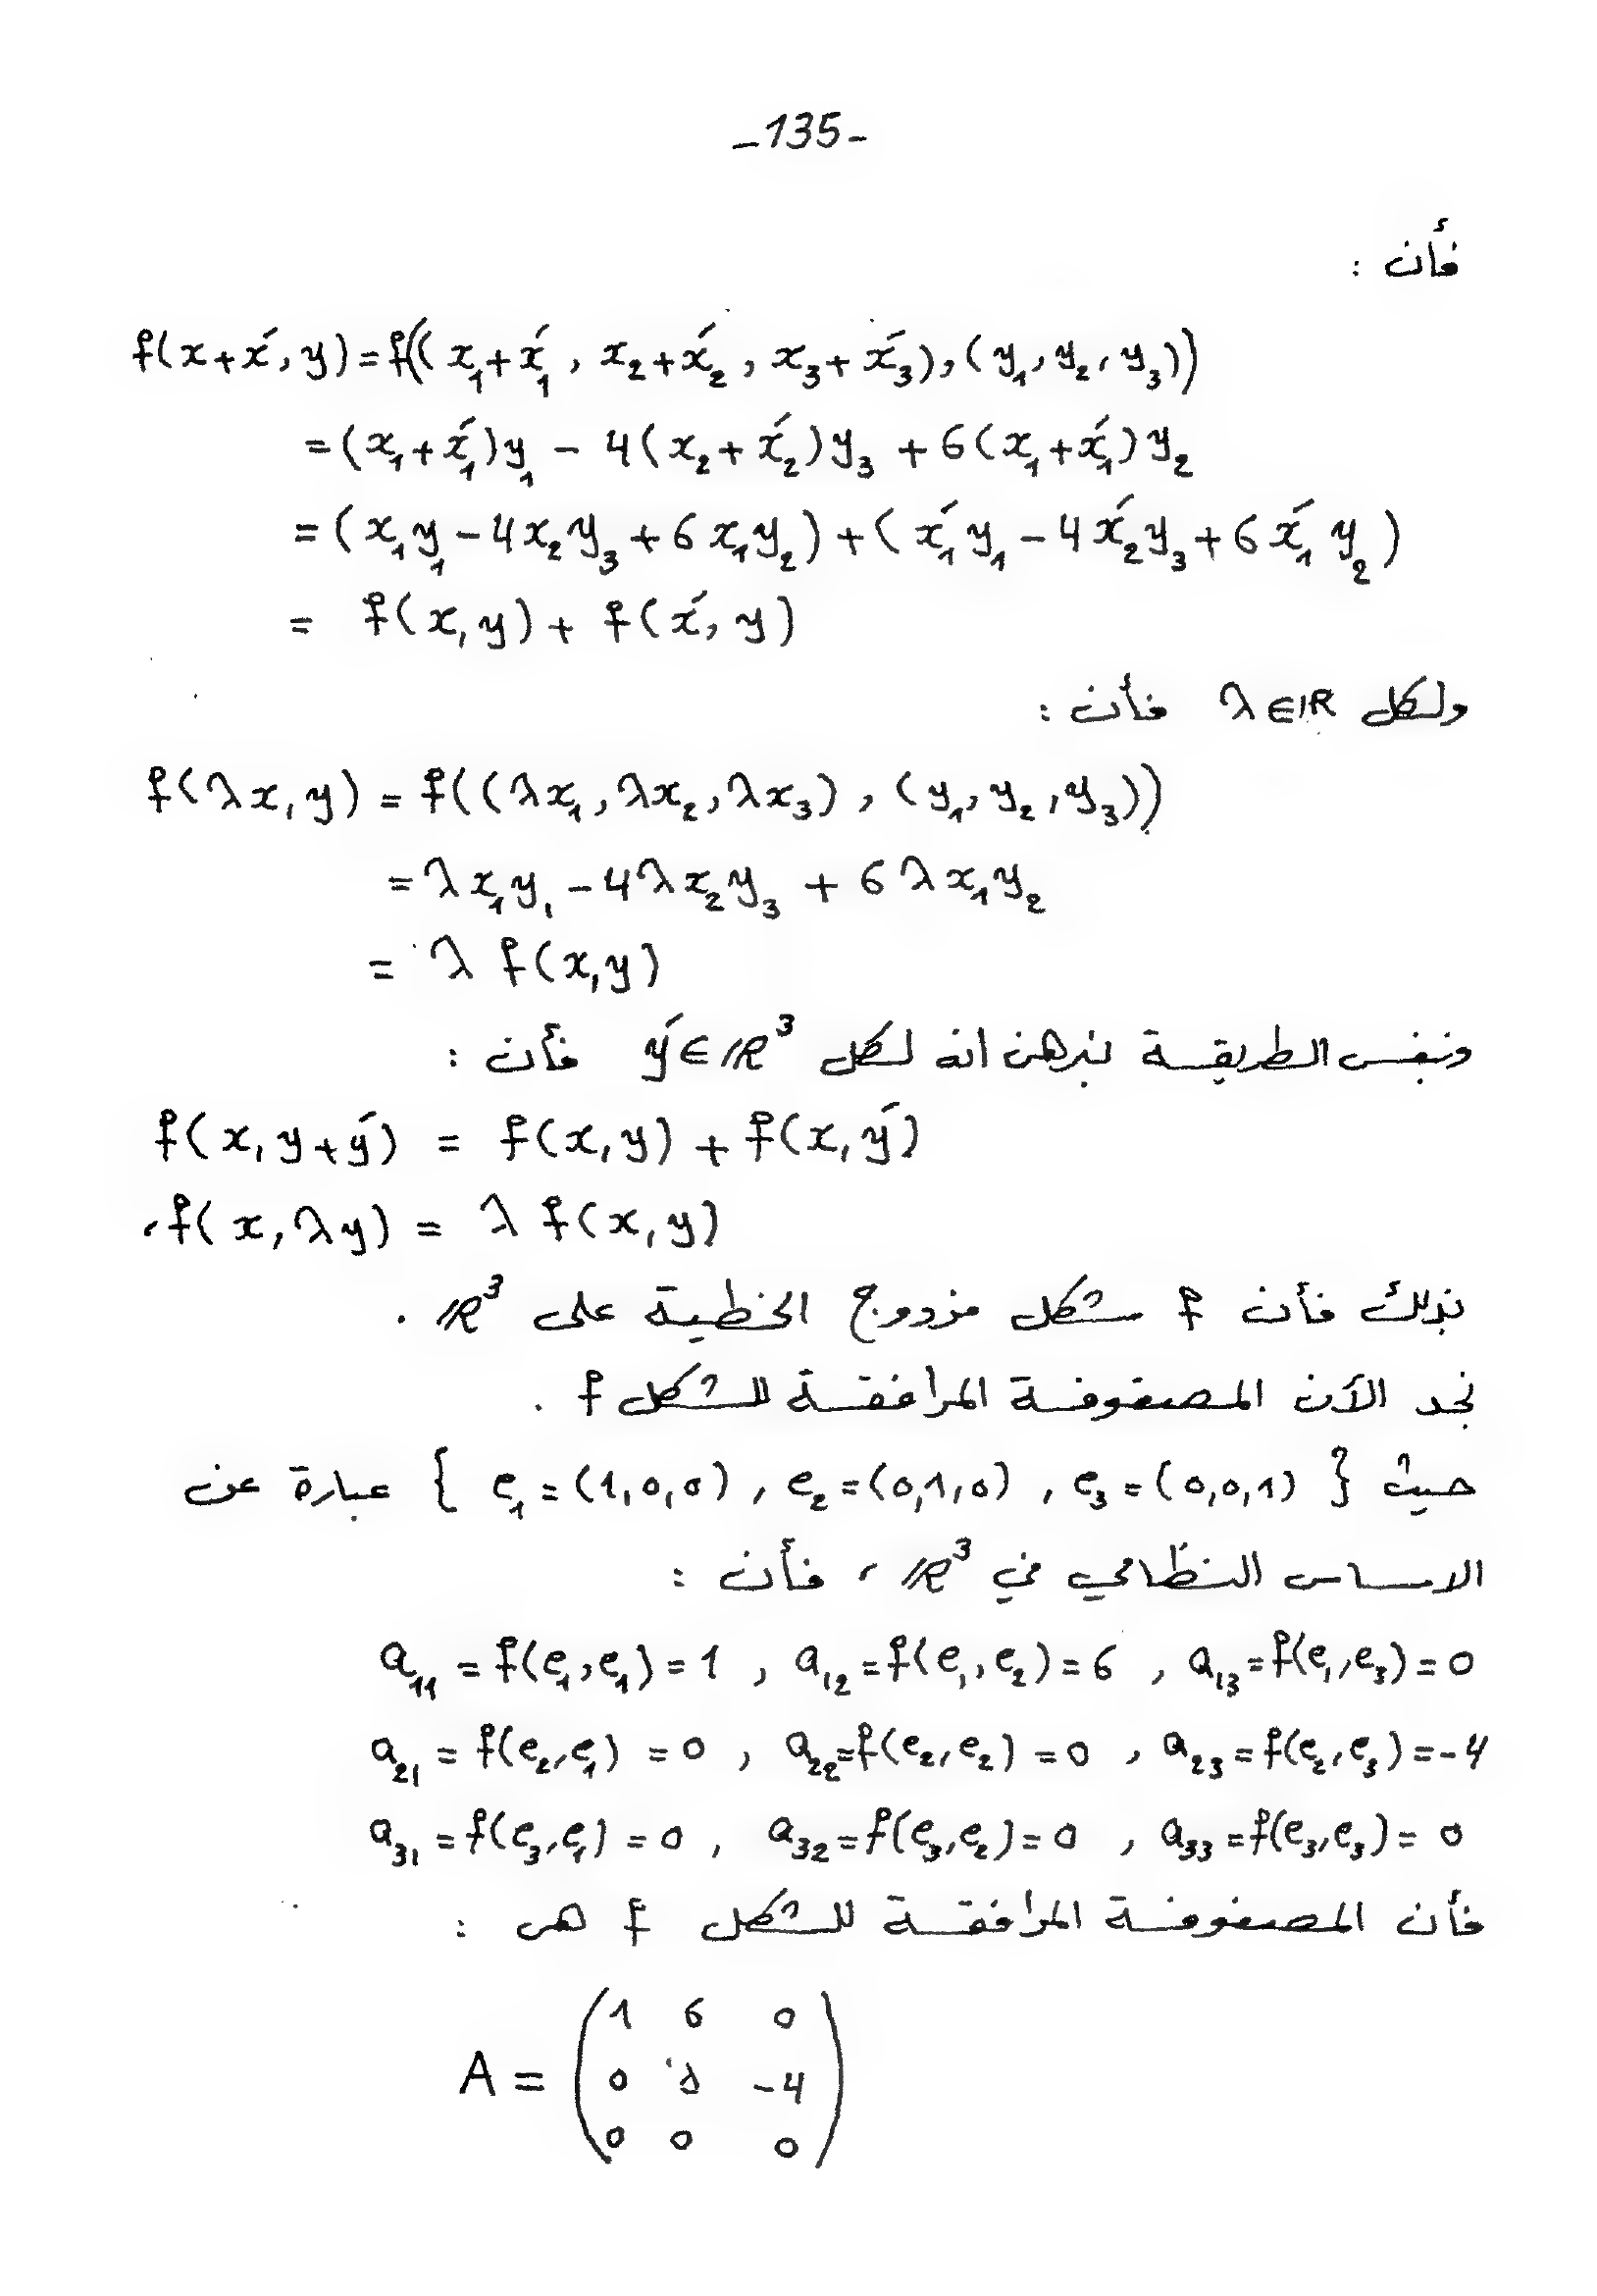 -135-
فأن :
f(x+x́, y) = f((x₁+x́₁, x₂+x́₂, x₃+x́₃), (y₁, y₂, y₃))
= (x₁+x́₁)y₁ - 4(x₂+x́₂)y₃ + 6(x₁+x́₁)y₂
= (x₁y₁ - 4x₂y₃ + 6x₁y₂) + (x́₁y₁ - 4x́₂y₃ + 6x́₁y₂)
= f(x, y) + f(x́, y)
ولكل λ∈ℝ فأن :
f(λx, y) = f((λx₁, λx₂, λx₃), (y₁, y₂, y₃))
= λx₁y₁ - 4λx₂y₃ + 6λx₁y₂
= λ f(x, y)
وبنفس الطريقة نبرهن انه لكل ý∈ℝ³ فأن :
f(x, y+ý) = f(x, y) + f(x, ý)
، f(x, λy) = λ f(x, y)
بذلك فأن f شكل مزدوج الخطية على ℝ³ .
نجد الآن المصفوفة المرافقة للشكل f .
حيث { e₁=(1,0,0), e₂=(0,1,0), e₃=(0,0,1) } عبارة عن
الاساس النظامي في ℝ³ ، فأن :
a₁₁ = f(e₁,e₁) = 1 , a₁₂ = f(e₁,e₂) = 6 , a₁₃ = f(e₁,e₃) = 0
a₂₁ = f(e₂,e₁) = 0 , a₂₂ = f(e₂,e₂) = 0 , a₂₃ = f(e₂,e₃) = -4
a₃₁ = f(e₃,e₁) = 0 , a₃₂ = f(e₃,e₂) = 0 , a₃₃ = f(e₃,e₃) = 0
فأن المصفوفة المرافقة للشكل f هى :
1 6 0
A = 0 0 -4
0 0 0